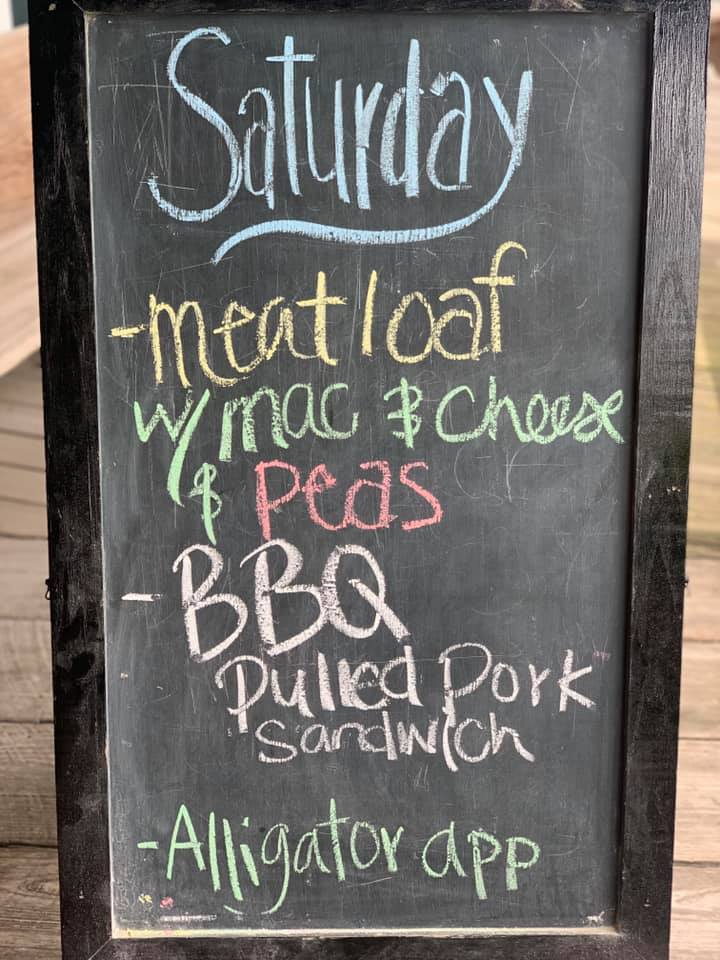 Saturday
-meatloaf
w/ mac & cheese
& peas
-BBQ
Pulled Pork
Sandwich
-Alligator app